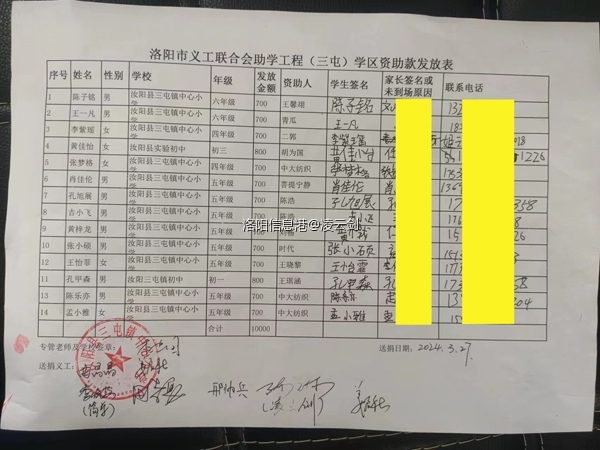 洛阳市义工联合会助学工程（三屯）学区资助款发放表
序号 姓名 性别 学校 年级 发放金额 资助人 学生签名 家长签名或未到场原因 联系电话
1 陈子铭 男 汝阳县三屯镇中心小学 六年级 700 王馨翊 陈子铭
2 王一凡 男 汝阳县三屯镇中心小学 六年级 700 青瓜 王一凡
3 李紫瑶 女 汝阳县三屯镇中心小学 四年级 700 二郭 李紫瑶
4 黄佳怡 女 汝阳县实验初中 初三 800 胡为国 1226
5 张梦格 女 汝阳县三屯镇中心小学 四年级 700 中大纺织
6 肖佳伦 男 汝阳县三屯镇中心小学 五年级 700 菩提宁静 肖佳伦
7 孔旭展 男 汝阳县三屯镇中心小学 五年级 700 陈浩 孔旭展 358
8 吉小飞 男 汝阳县三屯镇中心小学 五年级 700 陈浩
9 黄梓龙 男 汝阳县三屯镇中心小学 五年级 700
10 张小硕 男 汝阳县三屯镇中心小学 五年级 700 时代 张小硕
12 王怡菲 女 汝阳县三屯镇中心小学 五年级 700 王晓黎
11 孔甲森 男 汝阳三屯镇初中 初一 800 王琪涵 孔甲森
13 陈乐亦 男 汝阳县三屯镇中心小学 五年级 700 中大纺织
14 孟小雅 女 汝阳县三屯镇中心小学 五年级 700 中大纺织 孟小雅
合计 10000
洛阳信息港@凌云剑
专管老师及学校盖章： 送捐日期：2024.3.27.
送捐义工：